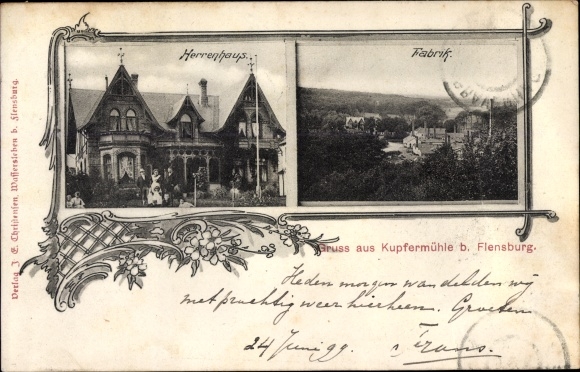 Herrenhaus.
Fabrik.
Verlag J. E. Christensen, Wassersleben b. Flensburg.
Gruss aus Kupfermühle b. Flensburg.
Heden morgen wandelden wij
met prachtig weer hierheen. Groeten
24 Juni 99. Frans.